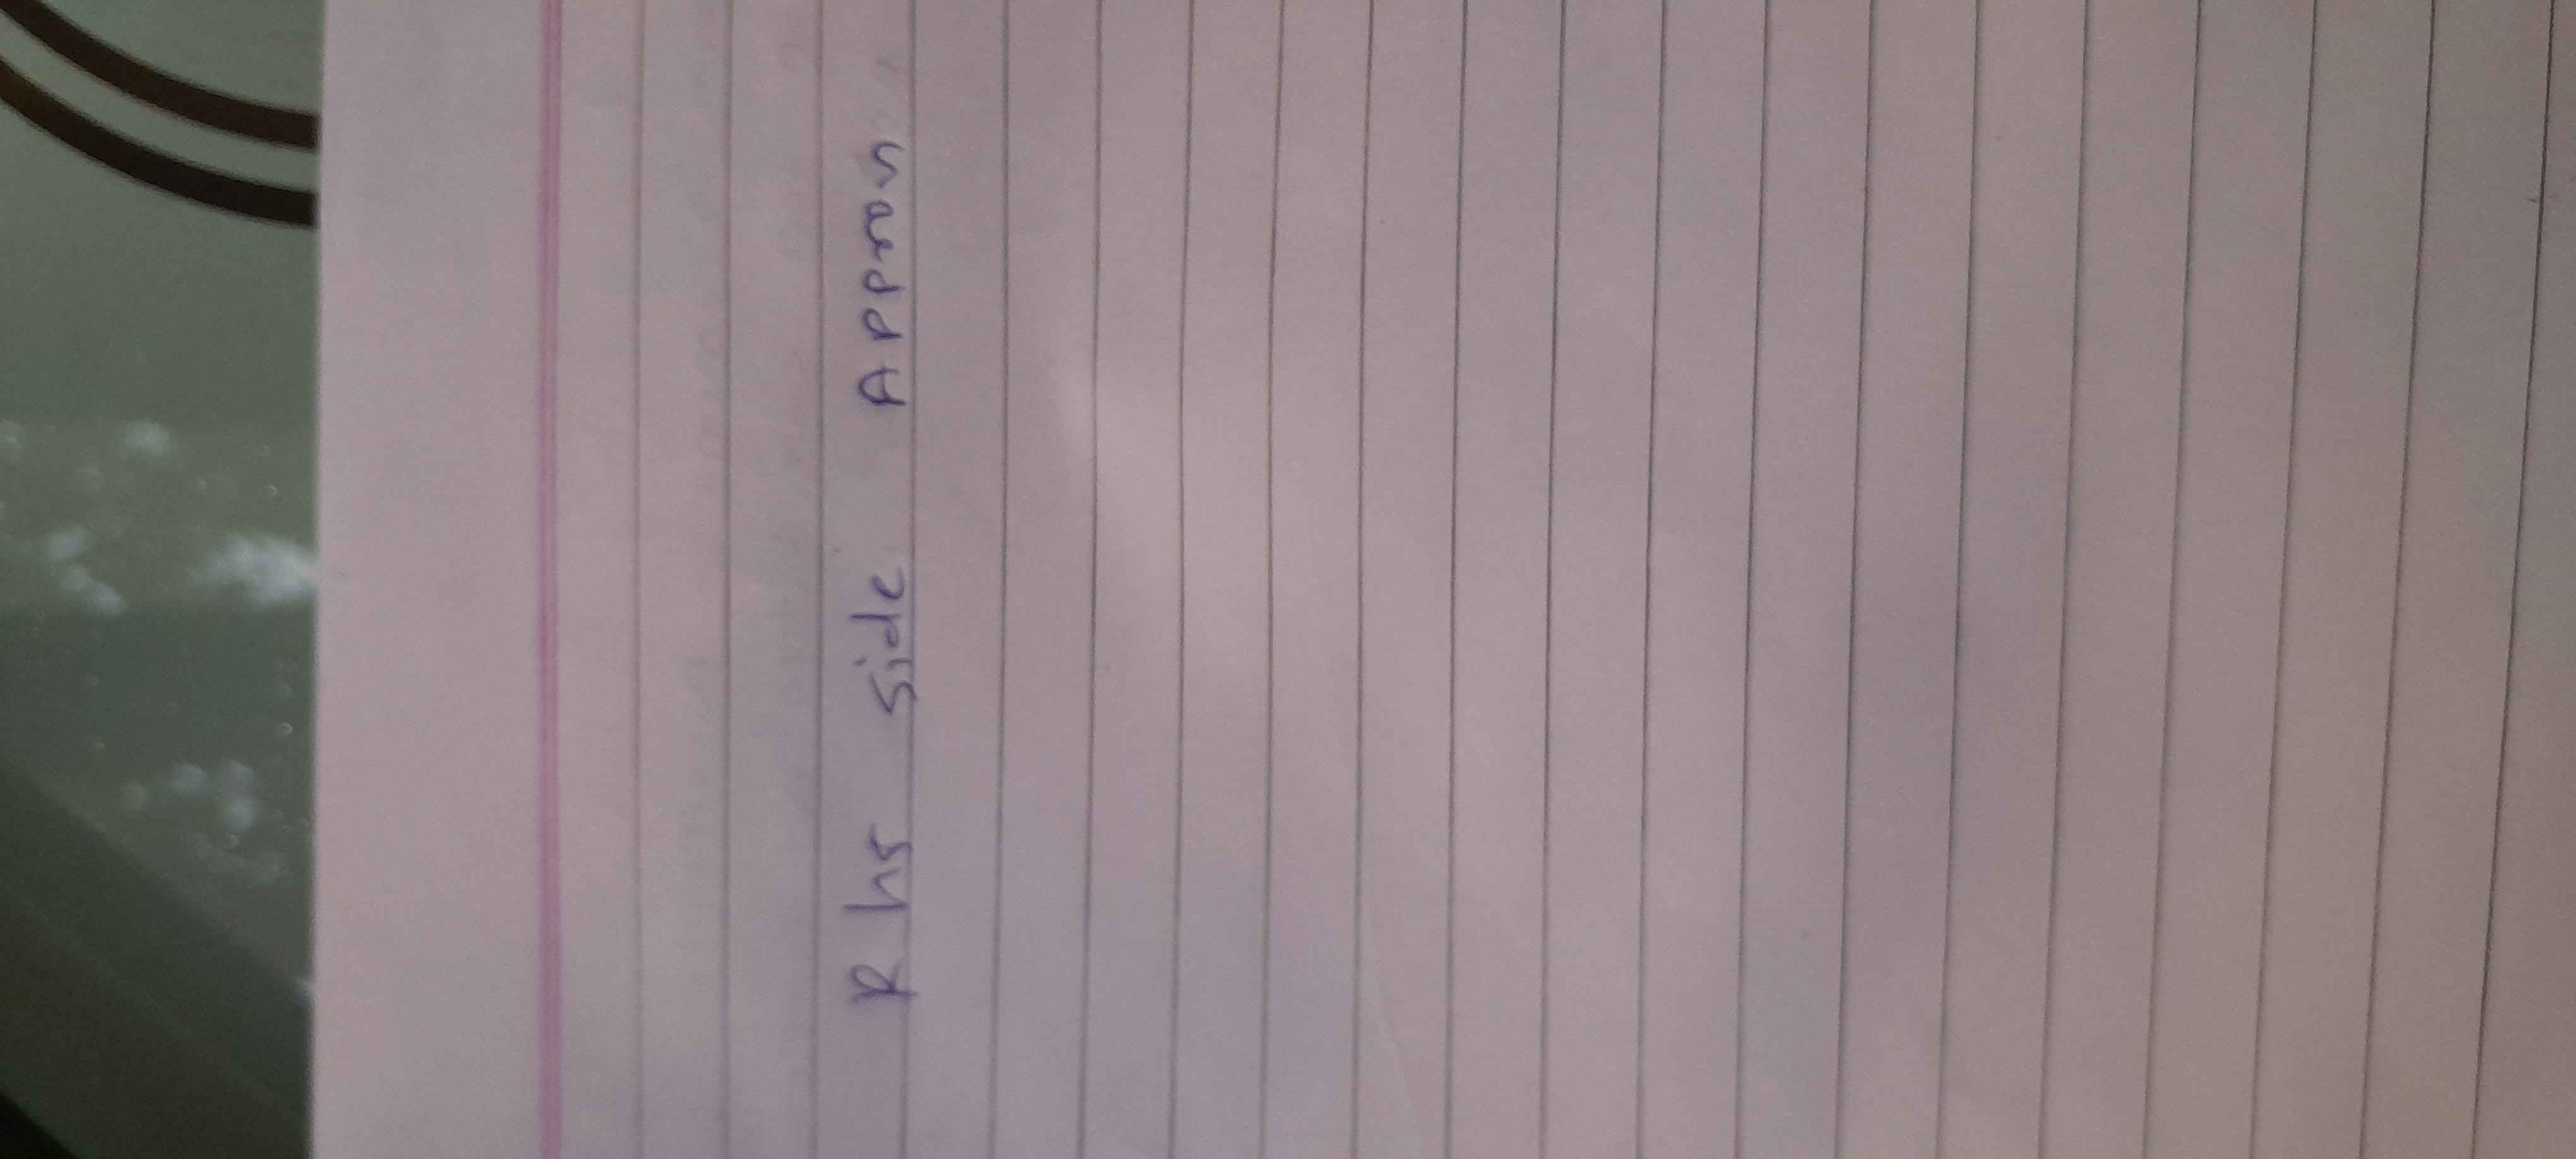 Rhs side Appron